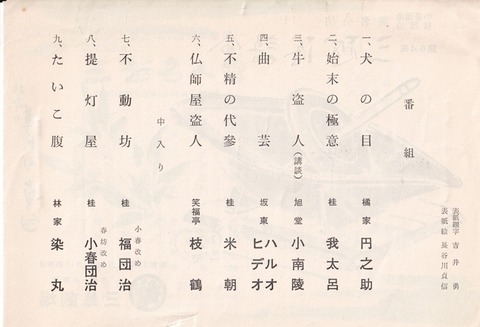 表紙題字 吉井勇
表紙絵 長谷川貞信
番組
一、犬の目 橘家 円之助
二、始末の極意 桂 我太呂
三、牛盗人(講談) 旭堂 小南陵
四、曲芸 坂東 ハルオ ヒデオ
五、不精の代参 桂 米朝
六、仏師屋盗人 笑福亭 枝鶴
中入り
七、不動坊 桂 小春改め 福団治
八、提灯屋 桂 春坊改め 小春団治
九、たいこ腹 林家 染丸